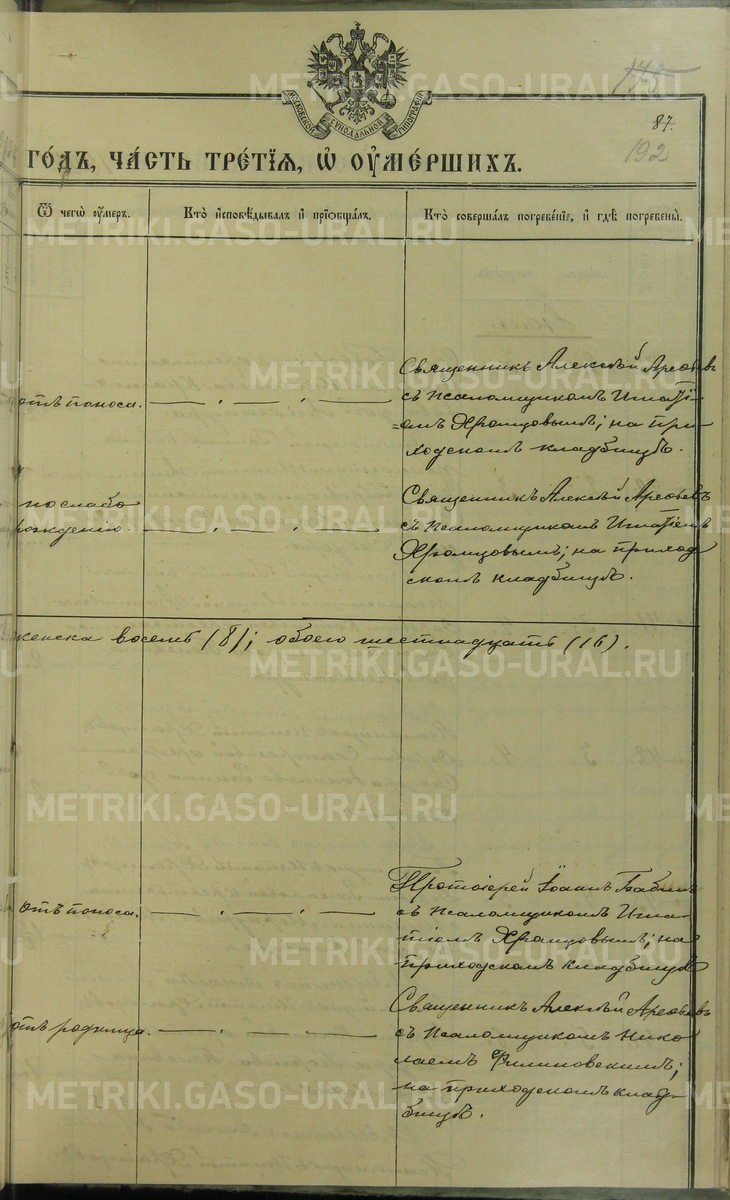 METRIKI.GASO-URAL.RU
МОСКОВСКОЙ СѴНОДАЛЬНОЙ ТИПОГРАФІИ
175
87.
192
ГО́ДЪ, ЧА́СТЬ ТРЕ́ТІѦ, Ѡ҆ ОУ҆МЕ́РШИХЪ.
Ѿ чегѡ̀ оу҆́меръ.
Кто̀ и҆сповѣ́дывалъ и҆ прїѡбща́лъ.
Кто̀ соверша́лъ погребе́нїе, и҆ гдѣ̀ погребены̀.
отъ поноса.
Священникъ Алексѣй Арефьевъ
съ псаломщикомъ Игнаті-
=емъ Хромцовымъ; на при-
ходскомъ кладбищѣ.
по слабо
рожденію.
Священникъ Алексѣй Арефьевъ
съ псаломщикомъ Игнатіемъ
Хромцовымъ; на приход
скомъ кладбищѣ.
женска восемь (8); обоего шестнадцать (16).
отъ поноса.
Протоіерей Іоаннъ Бабинъ
съ псаломщикомъ Игна-
тіемъ Хромцовымъ; на
приходскомъ кладбищѣ
отъ родимца.
Священникъ Алексѣй Арефьевъ
съ псаломщикомъ Нико
лаемъ Филиновскимъ;
на приходскомъ клад-
бищѣ.